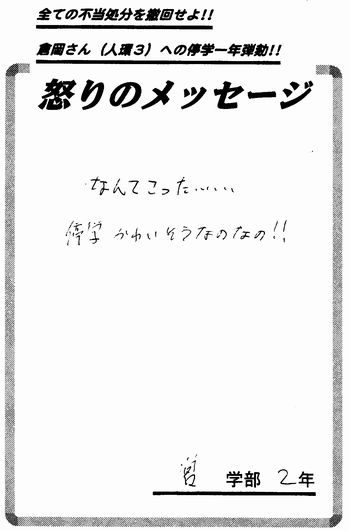 全ての不当処分を撤回せよ!!
倉岡さん（人環３）への停学一年弾劾!!
怒りのメッセージ
なんてこった、、、、
停学 かわいそうなのなの!!
営 学部 2年